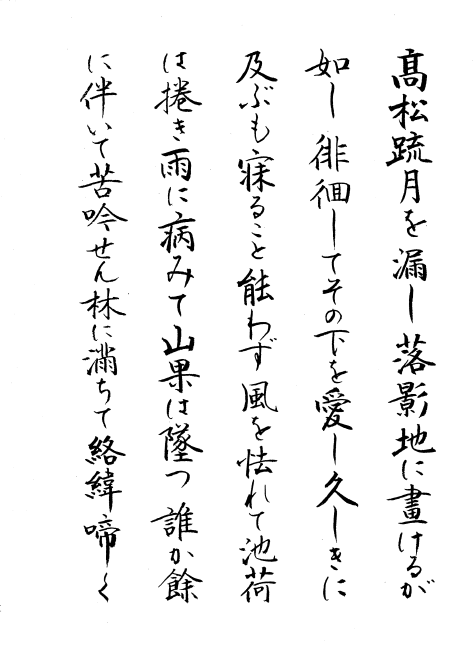 高松疏月を漏し落影地に畫けるが
如し徘徊してその下を愛し久しきに
及ぶも寐ること能わず風を怯れて池荷
は捲き雨に病みて山果は墜つ誰か餘
に伴いて苦吟せん林に満ちて絡緯啼く